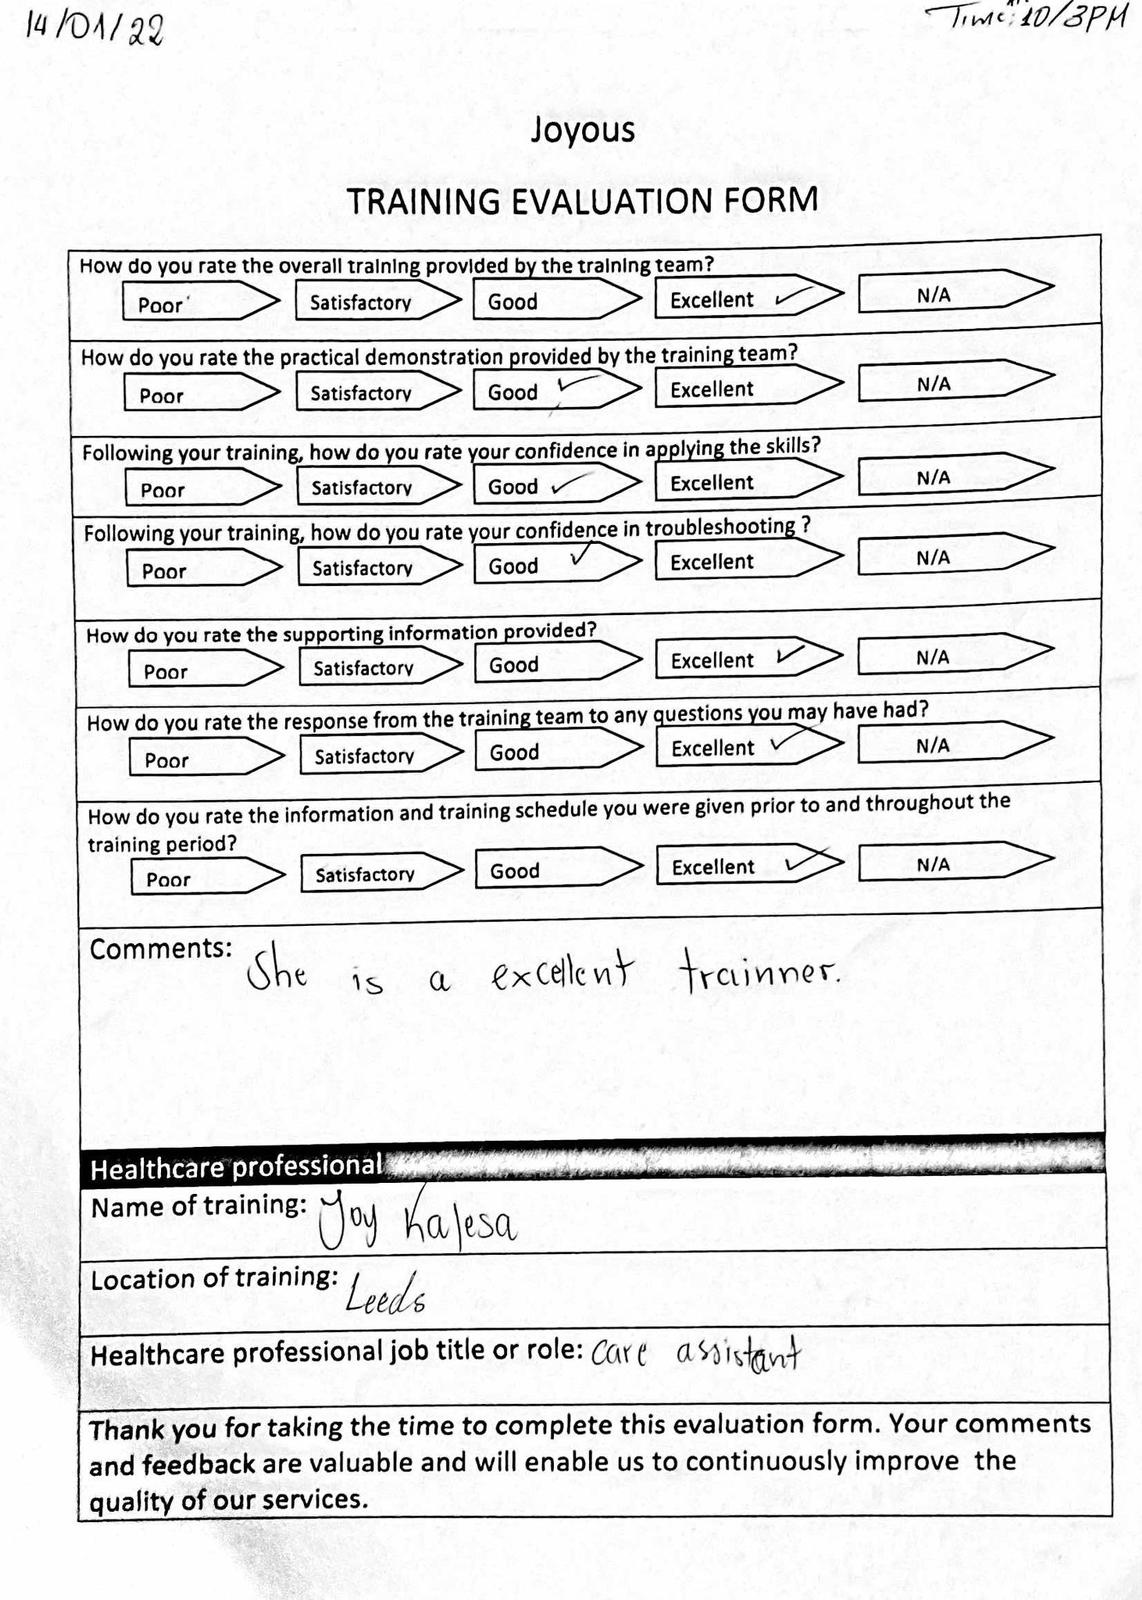 14/01/22
Time: 10/3PM
Joyous
TRAINING EVALUATION FORM
How do you rate the overall training provided by the training team?
Poor Satisfactory Good Excellent ✓ N/A
How do you rate the practical demonstration provided by the training team?
Poor Satisfactory Good ✓ Excellent N/A
Following your training, how do you rate your confidence in applying the skills?
Poor Satisfactory Good ✓ Excellent N/A
Following your training, how do you rate your confidence in troubleshooting ?
Poor Satisfactory Good ✓ Excellent N/A
How do you rate the supporting information provided?
Poor Satisfactory Good Excellent ✓ N/A
How do you rate the response from the training team to any questions you may have had?
Poor Satisfactory Good Excellent ✓ N/A
How do you rate the information and training schedule you were given prior to and throughout the
training period?
Poor Satisfactory Good Excellent ✓ N/A
Comments: She is a excellent trainner.
Healthcare professional
Name of training: Joy Kalesa
Location of training: Leeds
Healthcare professional job title or role: care assistant
Thank you for taking the time to complete this evaluation form. Your comments
and feedback are valuable and will enable us to continuously improve the
quality of our services.